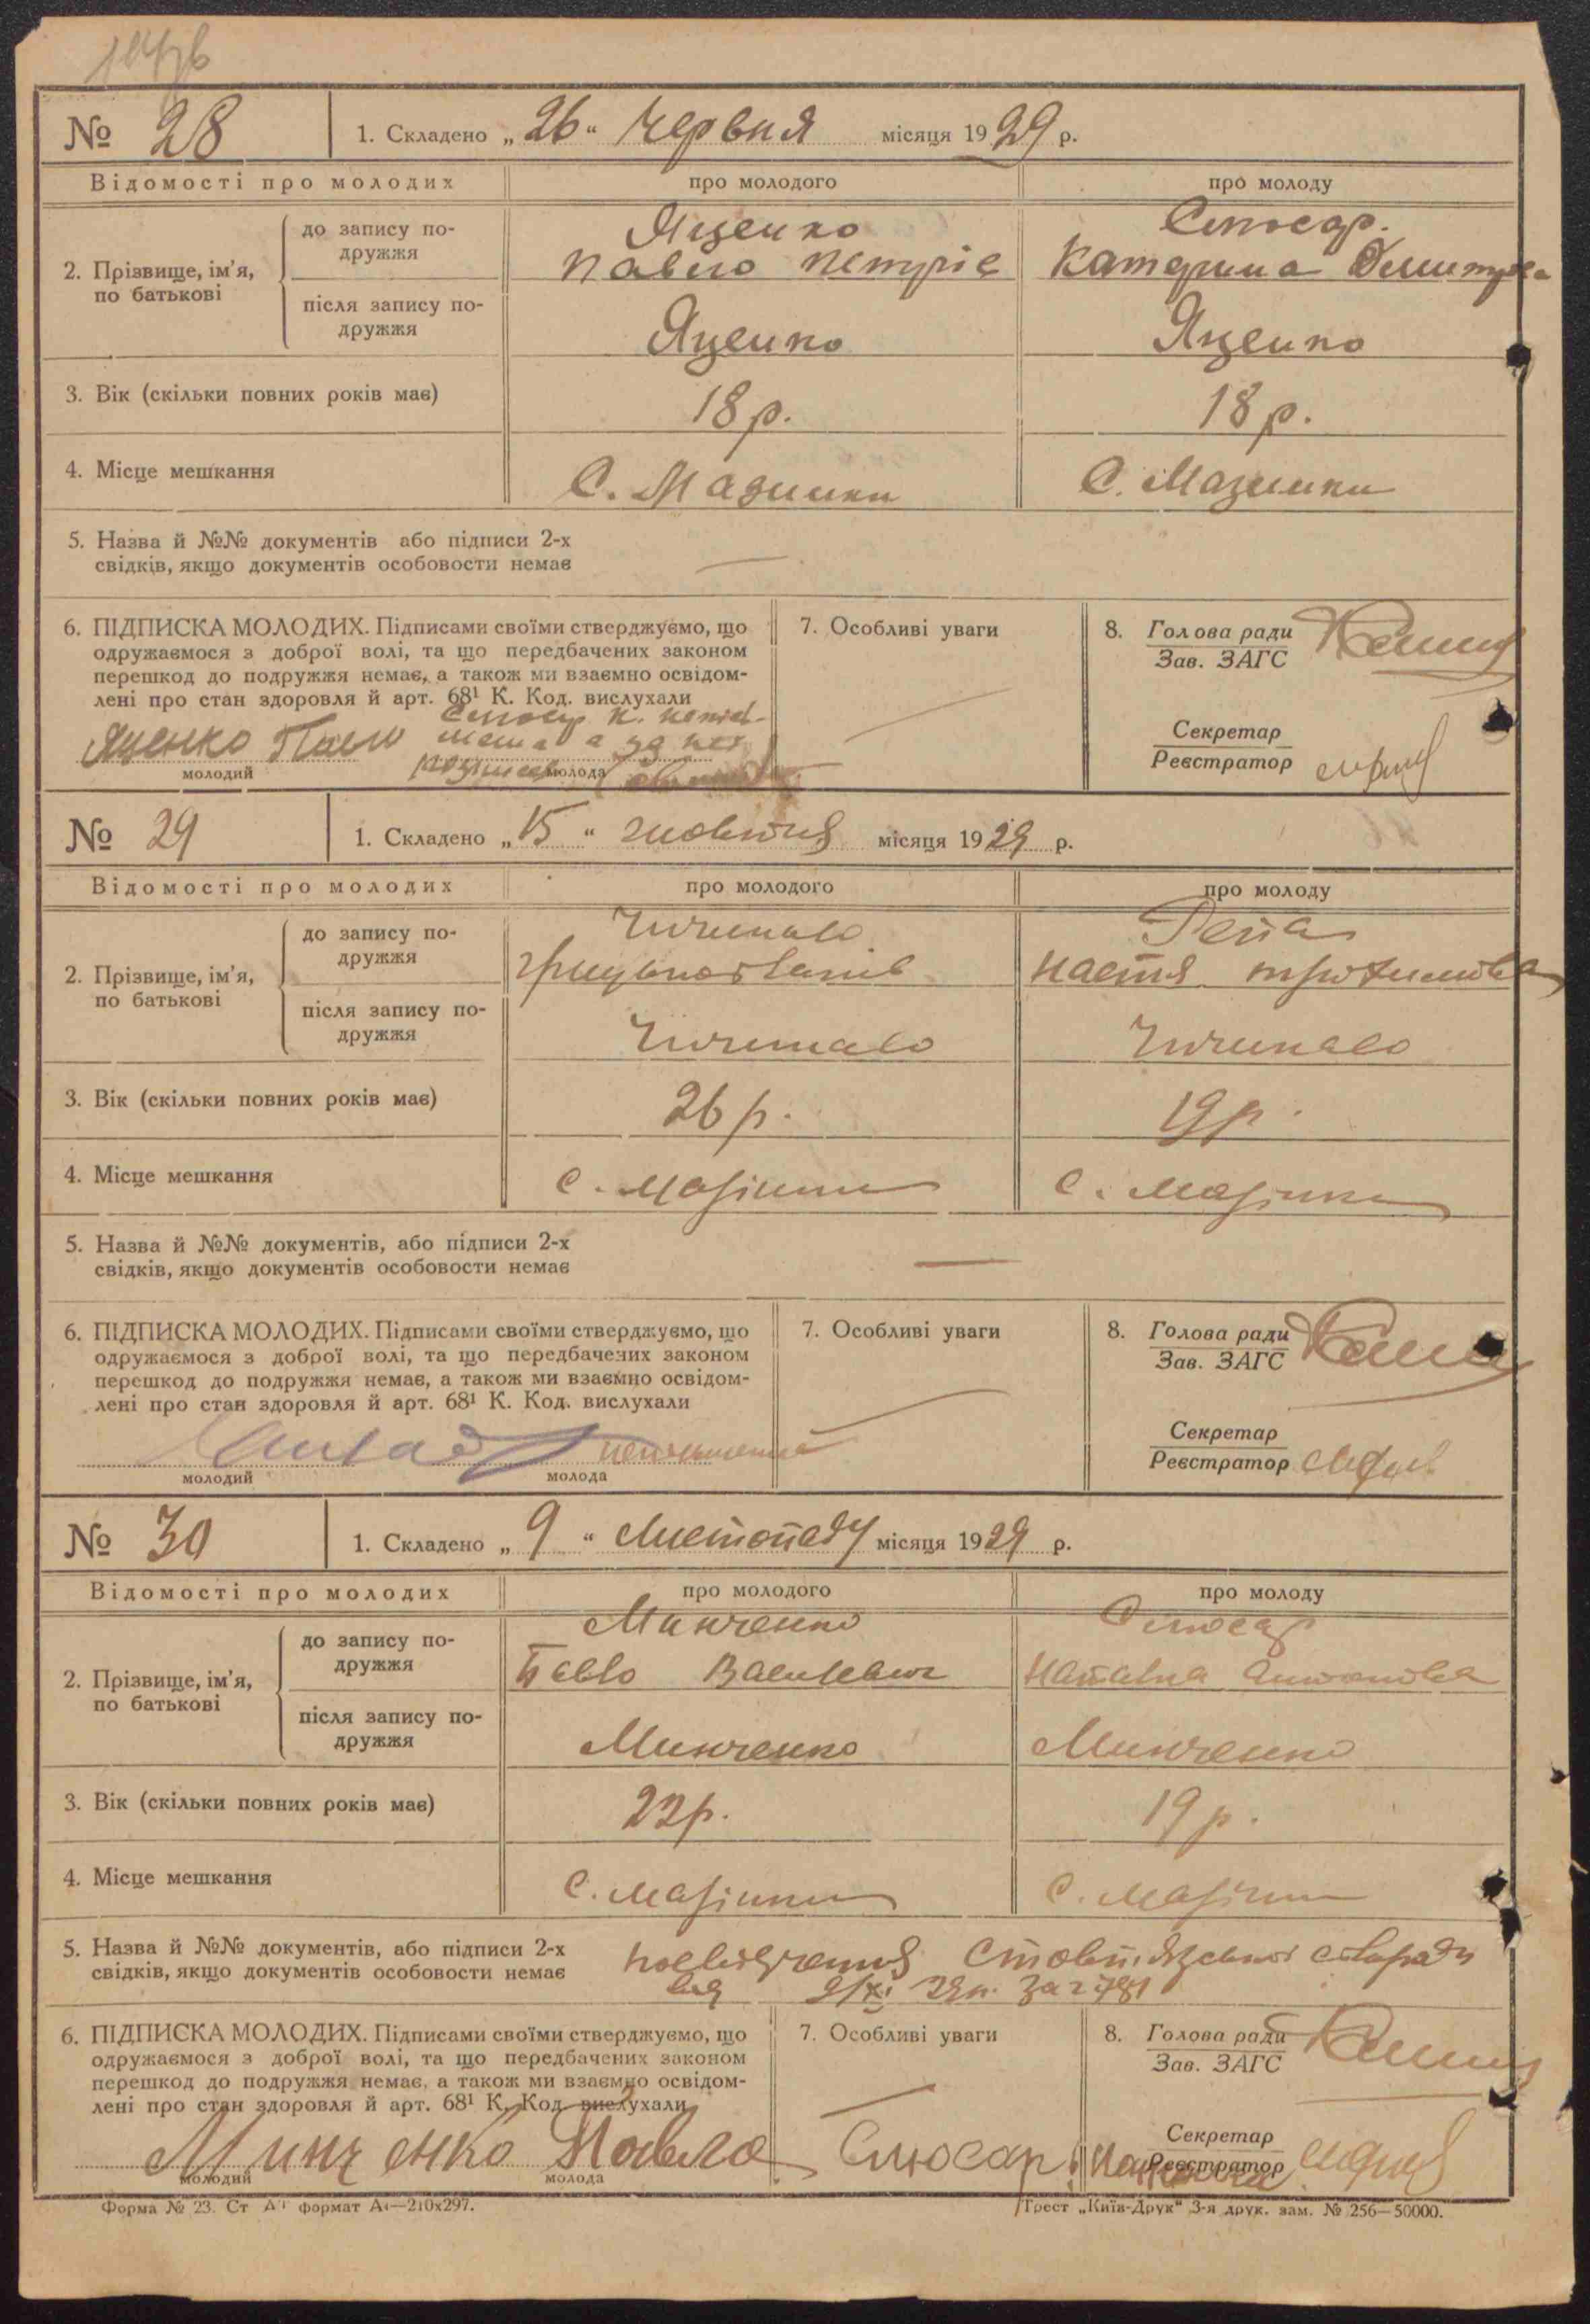 № 28
1. Складено „26“ Червня місяця 1929 р.
Відомості про молодих
про молодого
про молоду
2. Прізвище, ім'я, по батькові
до запису подружжя
Яценко
Павло Петрів
Слюсар.
Катерина
після запису подружжя
Яценко
Яценко
3. Вік (скільки повних років має)
18 р.
18 р.
4. Місце мешкання
С. Мазинки
С. Мазинки
5. Назва й №№ документів або підписи 2-х
свідків, якщо документів особовости немає
—
6. ПІДПИСКА МОЛОДИХ. Підписами своїми стверджуємо, що
одружаємося з доброї волі, та що передбачених законом
перешкод до подружжя немає, а також ми взаємно освідом-
лені про стан здоровля й арт. 68¹ К. Код. вислухали
Слюсар К.
Яценко а за неї
молодий
молода
7. Особливі уваги
8. Голова ради
Зав. ЗАГС
Секретар
Реєстратор
№ 29
1. Складено „15“ жовтня місяця 1929 р.
Відомості про молодих
про молодого
про молоду
2. Прізвище, ім'я, по батькові
до запису подружжя
Репа
Настя
після запису подружжя
3. Вік (скільки повних років має)
26 р.
19 р.
4. Місце мешкання
с. Мазінки
с. Мазінки
5. Назва й №№ документів, або підписи 2-х
свідків, якщо документів особовости немає
—
6. ПІДПИСКА МОЛОДИХ. Підписами своїми стверджуємо, що
одружаємося з доброї волі, та що передбачених законом
перешкод до подружжя немає, а також ми взаємно освідом-
лені про стан здоровля й арт. 68¹ К. Код. вислухали
молодий
молода
7. Особливі уваги
8. Голова ради
Зав. ЗАГС
Секретар
Реєстратор
№ 30
1. Складено „9“ Листопаду місяця 1929 р.
Відомості про молодих
про молодого
про молоду
2. Прізвище, ім'я, по батькові
до запису подружжя
Минченко
Павло Васильевич
Слюсар
Наталка Антонова
після запису подружжя
Минченко
Минченко
3. Вік (скільки повних років має)
22 р.
19 р.
4. Місце мешкання
с. Мазінки
с. Мазінки
5. Назва й №№ документів, або підписи 2-х
свідків, якщо документів особовости немає
посвідчення Стовп'язської сільради
від
6. ПІДПИСКА МОЛОДИХ. Підписами своїми стверджуємо, що
одружаємося з доброї волі, та що передбачених законом
перешкод до подружжя немає, а також ми взаємно освідом-
лені про стан здоровля й арт. 68¹ К. Код. вислухали
Минченко Павло Слюсар
молодий
молода
7. Особливі уваги
8. Голова ради
Зав. ЗАГС
Секретар
Реєстратор
Форма № 23. Ст А4 формат А4—210x297.
Трест „Київ-Друк“ 3-я друк. зам. № 256—50000.